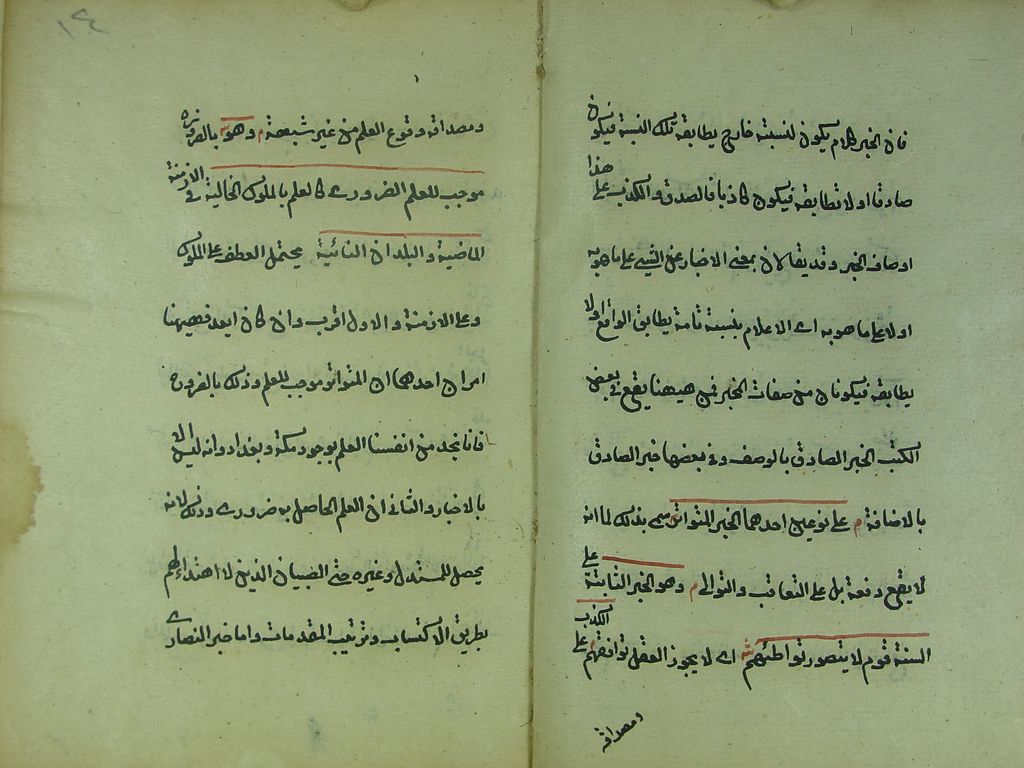 فان الخبر كلام يكون لنسبته خارج يطابقه تلك النسبة فيكون
صادقا اولا تطابقه فيكون كاذبا فالصدق والكذب على هذا
اوصاف الخبر وقد يقالان بمعنى الاخبار عن الشيئ على ما هو به
اولا على ما هو به اى الاعلام بنسبة تامة يطابق الواقع اولا
يطابقه فيكونان من صفات المخبر فمن هيهنا يقع فى بعض
الكتب الخبر الصادق بالوصف وفى بعضها خبر الصادق
بالاضافة م على نوعين احدهما الخبر المتواتر سمى بذلك لما انه
لا يقع دفعة بل على التعاقب والتوالى م وهو الخبر الثابتة على
السنة قوم لا يتصور تواطئهم ش اى لا يجوز العقل توافقهم على الكذب
ومصداقه
١٤
ومصداقه وقوع العلم من غير شبهة م وهو بالضرورة
موجب للعلم الضرورى كالعلم بالملوك الخالية فى الازمنة
الماضية والبلدان النائية يحتمل العطف على الملوك
وعلى الازمنة والاول اقرب وان كان ابعد فهيهنا
امران احدهما ان المتواتر موجب للعلم وذلك بالضرورة
فانا نجد من انفسنا العلم بوجود مكة وبغداد وانه ليس الا
بالاخبار والثانى ان العلم الحاصل به ضرورى وذلك لانه
يحصل للمستدل وغيره حتى الصبيان الذين لا اهتداء لهم
بطريق الاكتساب وترتيب المقدمات واما خبر النصارى